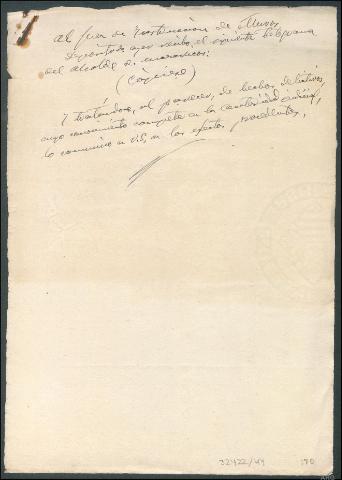 Al Juez de Instrucción de Muros
Depositado ayer recibo el siguiente telegrama
del alcalde de Mazaricos:
(cópiese)
Y tratándose, al parecer, de hechos delictivos,
cuyo conocimiento compete a la autoridad judicial,
lo comunico a V.S. a los efectos procedentes,
32422/49
170